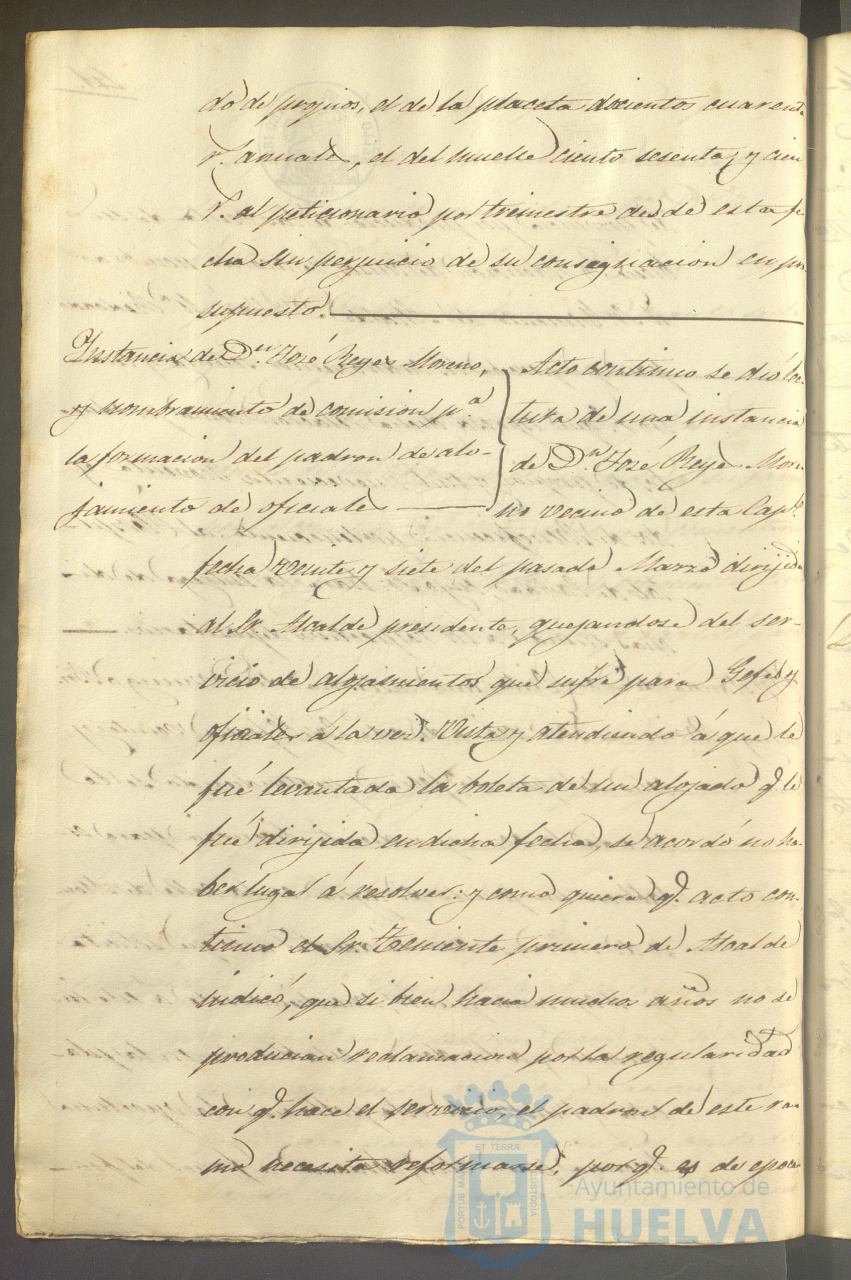 do de propios, el de la placeta docientos cuarenta
r.s anuales, el del muelle ciento sesenta, y cien
r.s al peticionario por trimestre desde esta fe-
cha sin perjuicio de su consignacion en pre-
supuesto.
Instancia de D.n José Reyes Moreno,
y nombramiento de comision p.a
la formacion del padron de alo-
jamiento de oficiales
Acto continuo se dió lec-
tura de una instancia
de D.n José Reyes More-
no vecino de esta Cap.l
fecha veinte y siete del pasado Marzo dirijida
al Sr. Alcalde presidente, quejandose del ser-
vicio de alojamientos que sufre para Gefes y
oficiales á la vez. Vista y atendiendo á que le
fué levantada la boleta de un alojado q.e le
fué dirijida en dicha fecha, se acordó no ha-
ber lugar á resolver: y como quiera q.e acto con-
tinuo el Sr. Teniente primero de Alcalde
indicó, que si bien hacia muchos años no se
producian reclamacion por la regularidad
con q.e hace el servicio, el padron de este ra-
mo necesita reformarse, por q.e es de epoca
PORTUS MARIS ET TERRÆ CUSTODIA
Ayuntamiento de
HUELVA